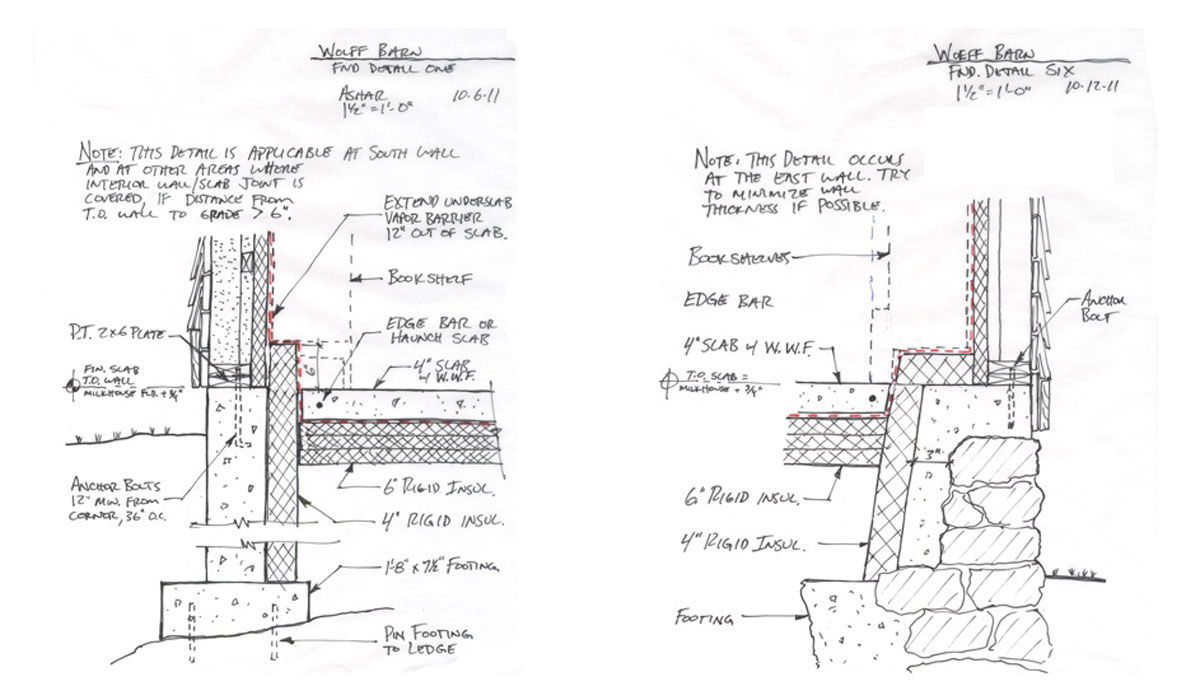 WOLFF BARN
FND DETAIL ONE
ASHAR
1½" = 1'-0"
10.6.11
NOTE: THIS DETAIL IS APPLICABLE AT SOUTH WALL
AND AT OTHER AREAS WHERE
INTERIOR WALL/SLAB JOINT IS
COVERED, IF DISTANCE FROM
T.O. WALL TO GRADE > 6".
EXTEND UNDERSLAB
VAPOR BARRIER
12" OUT OF SLAB.
BOOKSHELF
P.T. 2X6 PLATE
EDGE BAR OR
HAUNCH SLAB
6"
4" SLAB
W W.W.F.
FIN. SLAB
T.O. WALL
MILKHOUSE FLR. + ¾"
ANCHOR BOLTS
12" MIN. FROM
CORNER, 36" O.C.
6" RIGID INSUL.
4" RIGID INSUL.
1'-8" x 7½" FOOTING
PIN FOOTING
TO LEDGE
WOLFF BARN
FND. DETAIL SIX
1½" = 1'-0"
10-12-11
NOTE: THIS DETAIL OCCURS
AT THE EAST WALL. TRY
TO MINIMIZE WALL
THICKNESS IF POSSIBLE.
BOOKSHELVES
EDGE BAR
ANCHOR
BOLT
4" SLAB W W.W.F.
T.O. SLAB =
MILKHOUSE + ¾"
3"
6" RIGID INSUL.
4" RIGID INSUL.
FOOTING